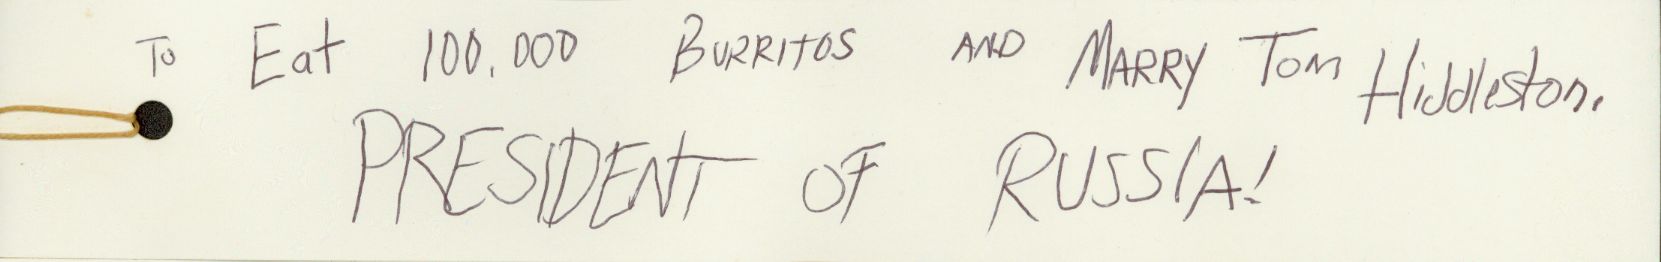 To Eat 100,000 BURRITOS AND MARRY TOM Hiddleston.
PRESIDENT OF RUSSIA!